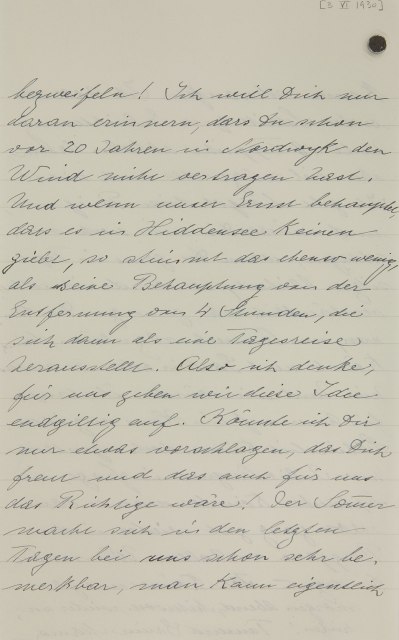 [3 VI 1930]
bezweifeln! Ich will Dich nur
daran erinnern, dass Du schon
vor 20 Jahren in Nordwyk den
Wind nicht vertragen hast.
Und wenn unser Ernst behauptet,
dass es in Hiddensee keinen
giebt, so stimmt das ebenso wenig,
als Deine Behauptung von der
Entfernung von 4 Stunden, die
sich dann als eine Tagesreise
herausstellt. Also ich denke,
für uns geben wir diese Idee
endgiltig auf. Könnte ich Dir
nur etwas vorschlagen, das Dich
freut und das auch für uns
das Richtige wäre! Der Som̅er
macht sich in den letzten
Tagen bei uns schon sehr be-
merkbar, man kann eigentlich